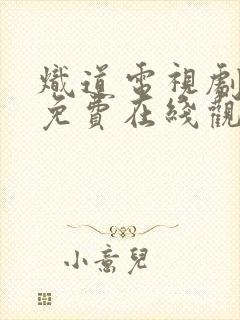 熾道電視劇
免費在綫觀
小意兒